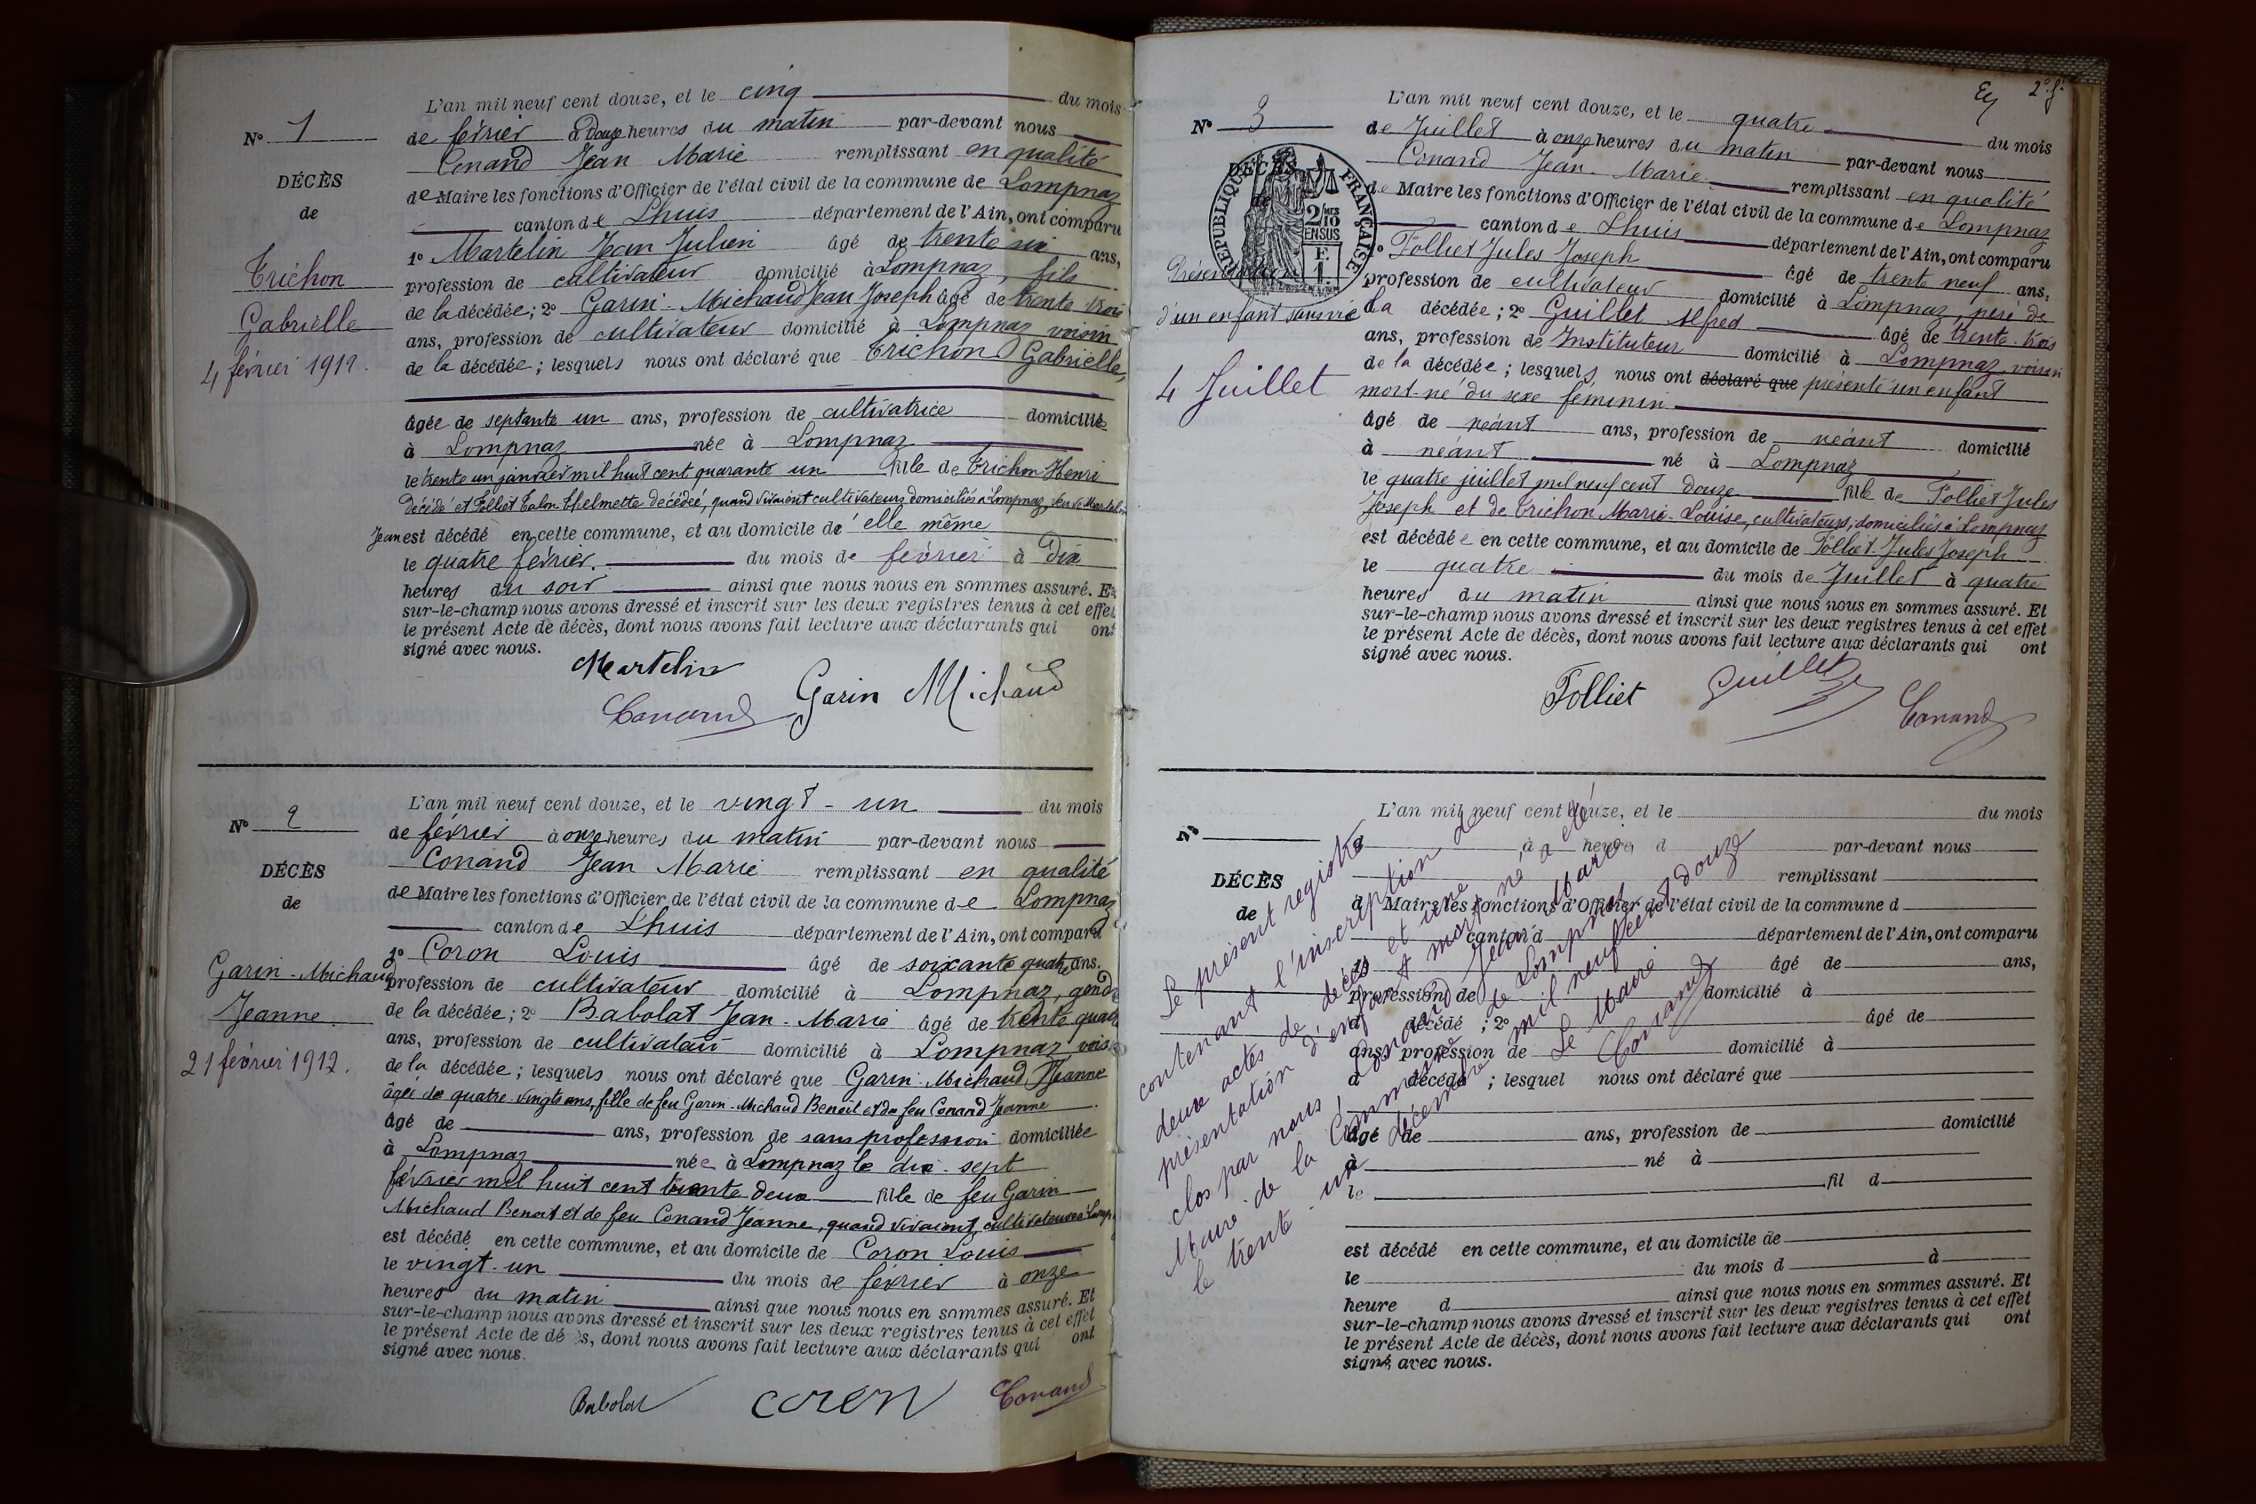 N° 1
DÉCÈS
de
Trichon
Gabrielle
4 février 1912.
L'an mil neuf cent douze, et le cinq du mois
de février à douze heures du matin par-devant nous
Conand Jean Marie remplissant en qualité
de Maire les fonctions d'Officier de l'état civil de la commune de Lompnaz
canton de Lhuis département de l'Ain, ont comparu
1° Martelin Jean Julien âgé de trente six ans,
profession de cultivateur domicilié à Lompnaz, fils
de la décédée; 2° Garin-Michaud Jean Joseph âgé de trente trois
ans, profession de cultivateur domicilié à Lompnaz voisin
de la décédée; lesquels nous ont déclaré que Trichon Gabrielle,
âgée de septante un ans, profession de cultivatrice domiciliée
à Lompnaz née à Lompnaz
le trente un janvier mil huit cent quarante un fille de Trichon Henri
décédé et Folliet Thelmette décédée, quand vivaient cultivateurs domiciliés à Lompnaz, veuve Martelin
Jean est décédé en cette commune, et au domicile de elle même
le quatre février. du mois de février à dix
heures du soir ainsi que nous nous en sommes assuré. Et
sur-le-champ nous avons dressé et inscrit sur les deux registres tenus à cet effet
le présent Acte de décès, dont nous avons fait lecture aux déclarants qui ont
signé avec nous.
Martelin
Conand Garin Michaud
N° 2
DÉCÈS
de
Garin-Michaud
Jeanne.
21 février 1912.
L'an mil neuf cent douze, et le vingt-un du mois
de février à onze heures du matin par-devant nous
Conand Jean Marie remplissant en qualité
de Maire les fonctions d'Officier de l'état civil de la commune de Lompnaz
canton de Lhuis département de l'Ain, ont comparu
1° Coron Louis âgé de soixante quatre ans.
profession de cultivateur domicilié à Lompnaz, gendre
de la décédée; 2° Babolat Jean-Marie âgé de trente quatre
ans, profession de cultivateur domicilié à Lompnaz, vois
de la décédée; lesquels nous ont déclaré que Garin-Michaud Jeanne
âgée de quatre vingts ans, fille de feu Garin-Michaud Benoit et de feu Conand Jeanne
âgé de ans, profession de sans profession domiciliée
à Lompnaz née à Lompnaz le dix-sept
février mil huit cent trente deux fille de feu Garin
Michaud Benoit et de feu Conand Jeanne, quand vivaient, cultivateurs à Lomp
est décédé en cette commune, et au domicile de Coron Louis
le vingt-un du mois de février à onze
heures du matin ainsi que nous nous en sommes assuré. Et
sur-le-champ nous avons dressé et inscrit sur les deux registres tenus à cet effet
le présent Acte de décès, dont nous avons fait lecture aux déclarants qui ont
signé avec nous.
Babolat Coron Conand
2°
N° 3
DÉCÈS
de
RÉPUBLIQUE FRANÇAISE
2/10 EN SUS
Présentation
d'un enfant sans vie
4 Juillet
L'an mil neuf cent douze, et le quatre du mois
de Juillet à onze heures du matin par-devant nous
Conand Jean-Marie remplissant en qualité
de Maire les fonctions d'Officier de l'état civil de la commune de Lompnaz
canton de Lhuis département de l'Ain, ont comparu
1° Folliet Jules Joseph âgé de trente neuf ans,
profession de cultivateur domicilié à Lompnaz, père de
la décédée; 2° Guillet Alfred âgé de trente-trois
ans, profession de Instituteur domicilié à Lompnaz voisin
de la décédée; lesquels nous ont déclaré que présenté un enfant
mort-né du sexe féminin
âgé de néant ans, profession de néant domicilié
à néant né à Lompnaz
le quatre juillet mil neuf cent douze fille de Folliet Jules
Joseph et de Trichon Marie-Louise, cultivateurs, domiciliés à Lompnaz
est décédée en cette commune, et au domicile de Folliet Jules Joseph
le quatre du mois de Juillet à quatre
heures du matin ainsi que nous nous en sommes assuré. Et
sur-le-champ nous avons dressé et inscrit sur les deux registres tenus à cet effet
le présent Acte de décès, dont nous avons fait lecture aux déclarants qui ont
signé avec nous.
Folliet Guillet Conand
N°
DÉCÈS
de
L'an mil neuf cent douze, et le du mois
d à heures d par-devant nous
remplissant
d Maire les fonctions d'Officier de l'état civil de la commune d
canton d département de l'Ain, ont comparu
1° âgé de ans,
profession de domicilié à
d décédé ; 2° âgé de
ans, profession de domicilié à
d décédé ; lesquel nous ont déclaré que
âgé de ans, profession de domicilié
à né à
le fil d
est décédé en cette commune, et au domicile de
le du mois d à
heure d ainsi que nous nous en sommes assuré. Et
sur-le-champ nous avons dressé et inscrit sur les deux registres tenus à cet effet
le présent Acte de décès, dont nous avons fait lecture aux déclarants qui ont
signé avec nous.
Le présent registre
contenant l'inscription de
deux actes de décès et une
présentation d'enfant mort-né a été
clos par nous, Conand Jean Marie
Maire de la Commune de Lompnaz
le trente-un décembre mil neuf cent douze
Le Maire
Conand